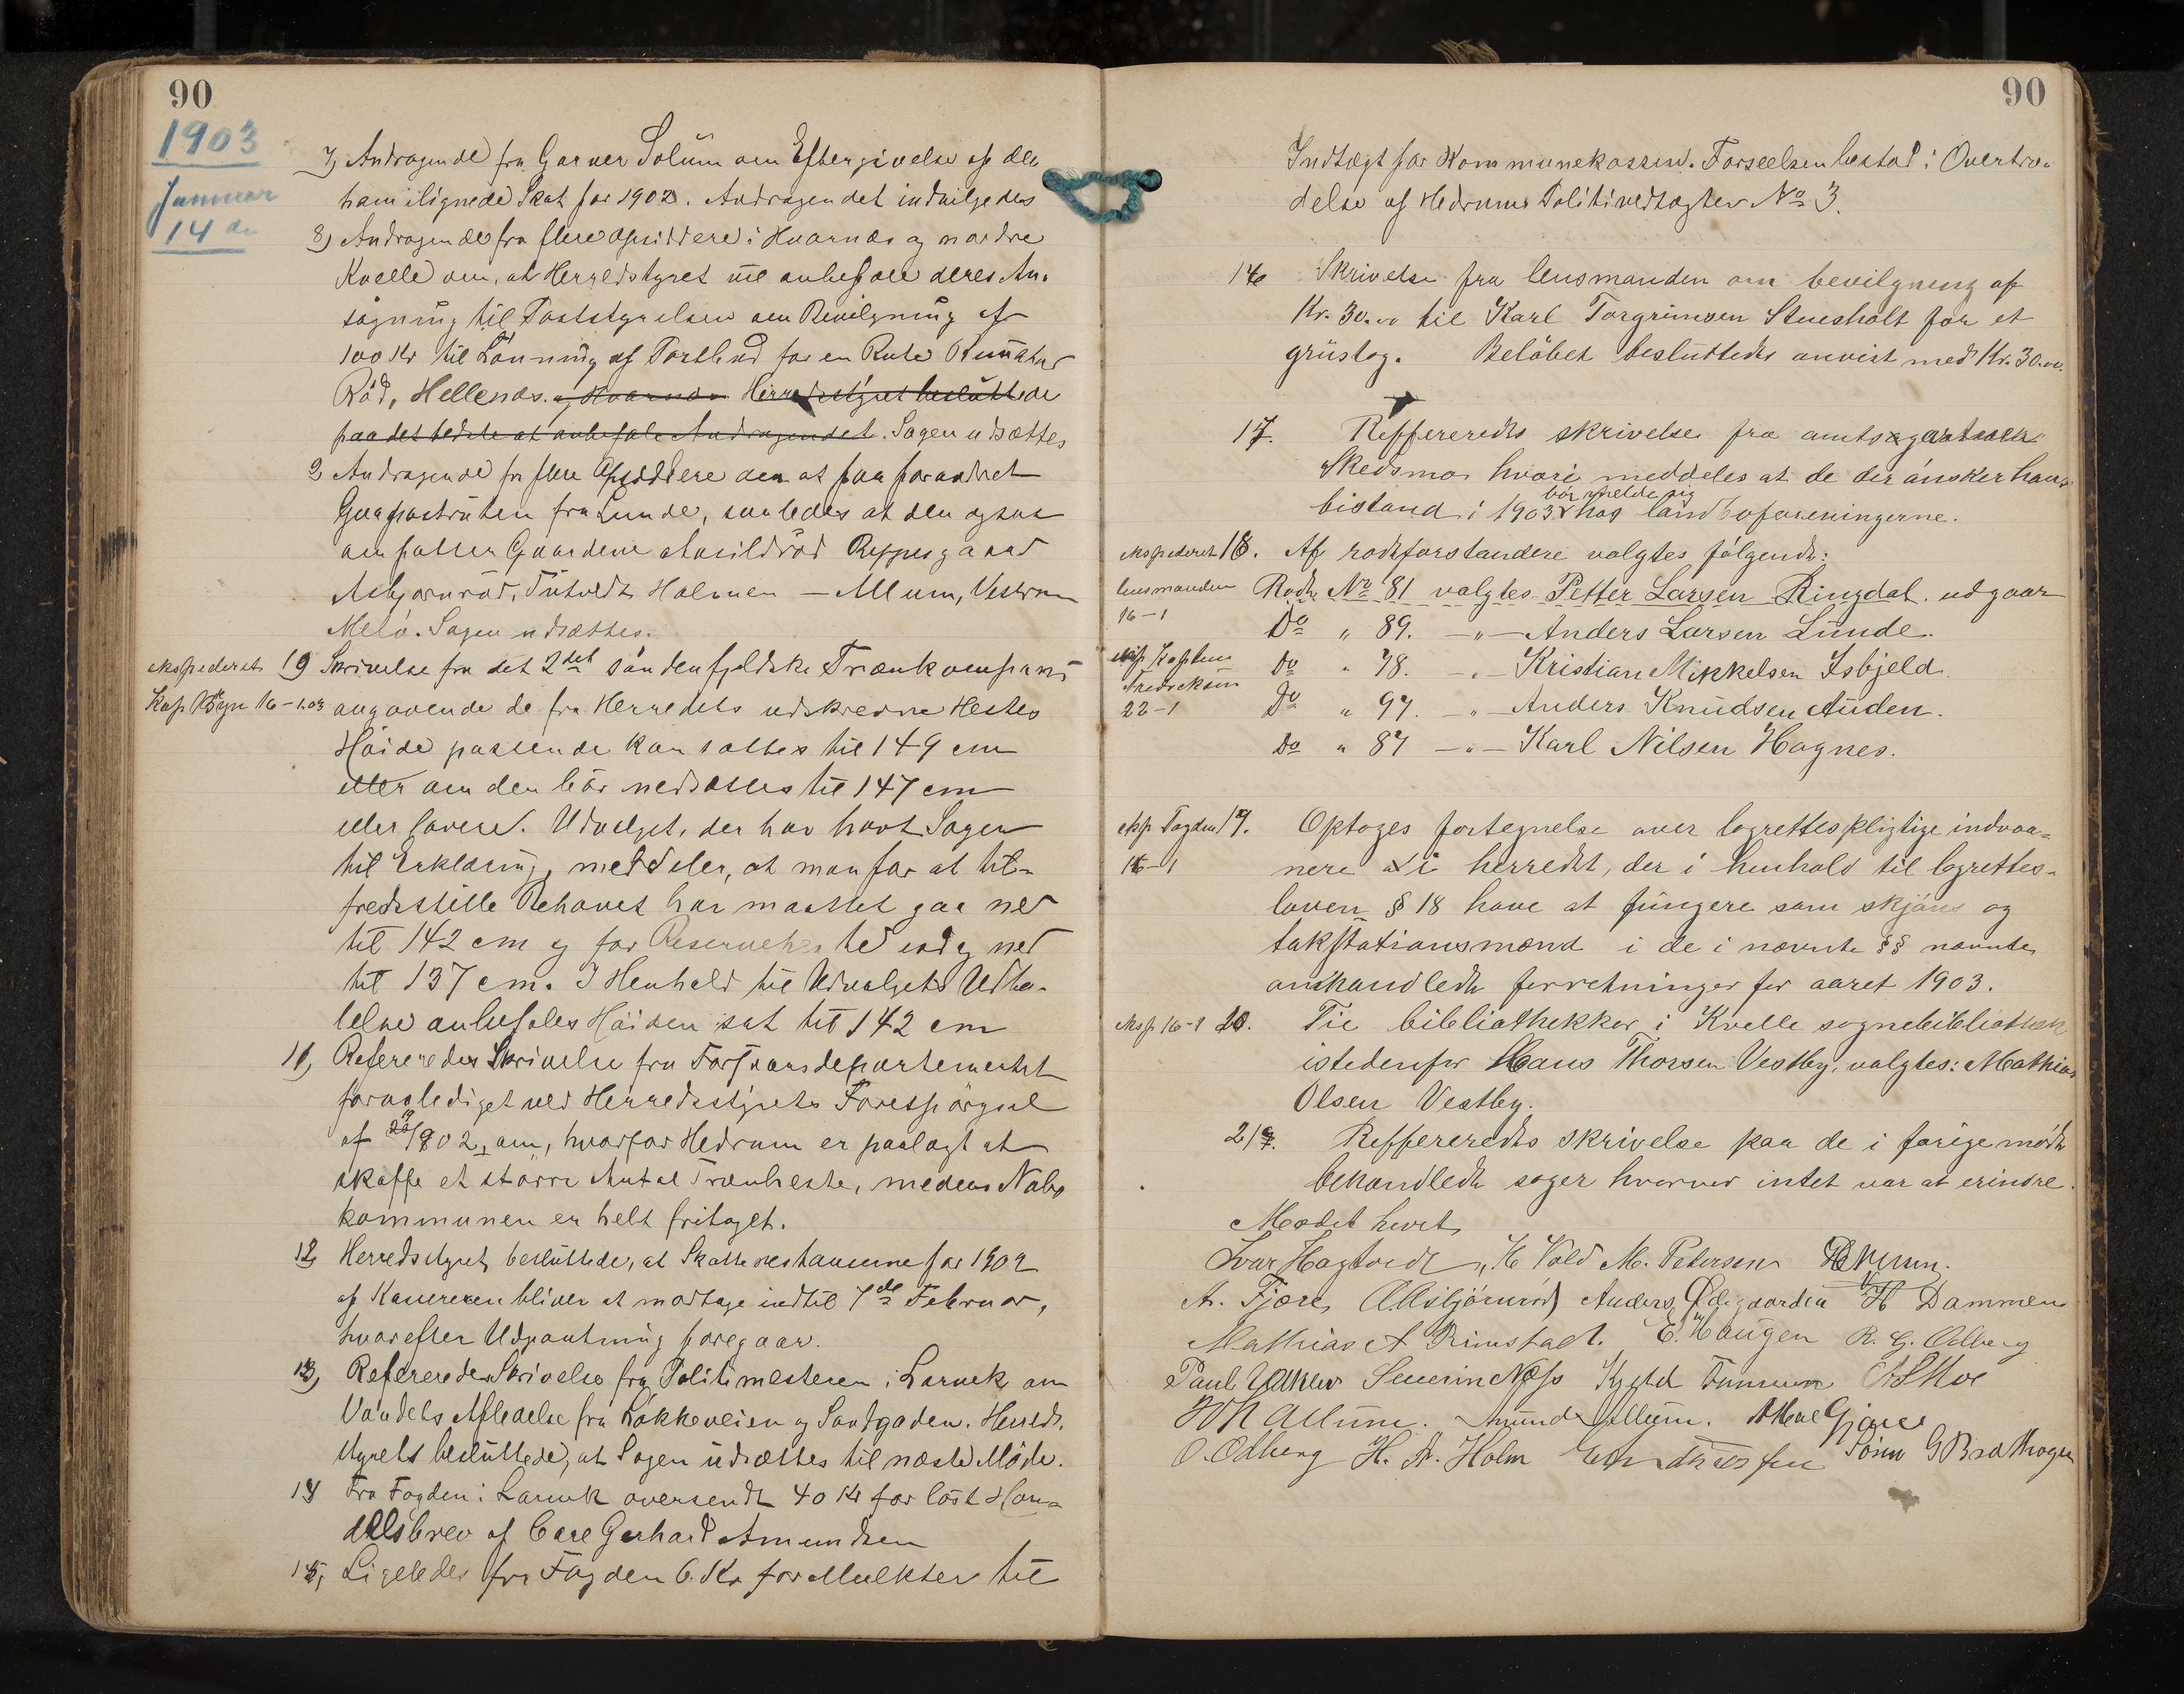 90
1903
Januar
14 de
7) Andragende fra Garver Solum om Eftergivelse af den
ham ilignede Skat for 1902. Andragendet indvilgedes
8) Andragende fra flere Opsiddere i Hvarnæs og nordre
Kvelle om, at Herredstyret vil anbefale deres An-
søgning til Poststyrelsen om Bevilgning af
100 Kr til Lønning af Postbud for en Rute
Rød, Hellenæs. og Hvarnæs Herredsstyret besluttede
paa det bedste at anbefale Andragendet. Sagen udsættes
9 Andragende fra flere Opsiddere om at faa forandret
Gaapostruten fra Lunde, saaledes at den ogsaa
omfatter Gaardene Reppesgaard
Asbjørnrød, Tutvedt Holmen — Allum, Vestrum
Melø. Sagen udsættes.
ekspederet
Kap Bryn 16-1.03
10 Skrivelse fra det 2det søndenfjeldske Trænkompani
angaaende de fra Herredets udskrevne Hestes
Høide passende kan sættes til 149 cm
eller om den bør nedsættes til 147 cm
eller lavere. Udvalget, der har havt Sagen
til Erklæring, meddeler, at man for at til-
fredsstille Behovet har maattet gaa ned
til 142 cm og for Reserveheste endog ned
til 137 cm. I Henhold til Udvalgets Udta-
lelse anbefales Høiden sat til 142 cm
11) Refereredes Skrivelse fra Forsvarsdepartementet
foranlediget ved Herredsstyrets Forespørgsel
af 902, om, hvorfor Hedrum er paalagt at
skaffe et større Antal Trænheste, medens Nabo
kommunen er helt fritaget.
12 Herredsstyret besluttede, at Skatterestanserne for 1902
af Kassereren bliver at modtage indtil 7de Februar,
hvorefter Udpantning foregaar.
13) Refereredes Skrivelse fra Politimesteren i Larvik om
Vandets Afledelse fra Løkkeveien og Sandgaden. Herreds-
styrets besluttede, at Sagen udsættes til næste Møde.
14 Fra Fogden i Larvik oversendt 40 Kr for løst Han-
delsbrev af Carl Gerhard Amundsen
15, Ligeledes fra Fogden 6. Kr for Mulkter til
90
Indtægt for Kommunekassen. Forseelsen bestod i Overtræ-
delse af Hedrums Politivedtægter No 3.
16 Skrivelse fra lensmanden om bevilgning af
Kr. 30.00 til Karl Torgrimsen Stuesholt for et
grustag. Beløbet besluttedes anvist med Kr. 30.00.
17. Reffereredes skrivelse fra amtsgartner
Skedsmo hvori meddeles at de der ønsker hans
bør melde sig
bistand i 1903 hos landboforeningerne.
ekspederet
lensmanden
16-1
18. Af rodeforstandere valgtes følgende:
Rode No 81 valgtes Petter Larsen Ringdal. udgaar
Do " 89. —"— Anders Larsen Lunde.
eksp Kaptein
Fredriksen
22-1
Do " 78. —"— Kristian Mikkelsen Isbjeld
Do " 97. —"— Anders Knudsen Auden.
Do " 87 —"— Karl Nilsen Hagnes.
eksp Fogden
16-1
19. Optoges fortegnelse over lagrettespligtige indvaa-
nere i herredet, der i henhold til lagrettes-
loven § 18 have at fungere som skjøns og
takstationsmænd i de i nævnte §§ nævnte
omhandlede forretninger for aaret 1903.
eksp 16-1
20. Til bibliothekkar i Kvelle sognebibliothek
istedenfor Hans Thorsen Vestby, valgtes: Mathias
Olsen Vestby.
21. Reffereredes skrivelse paa de i forige møde
behandlede sager hvorved intet var at erindre.
Mødet hævet
Ivar Hagtvedt H Vold M. Petersen
A. Fjære O Asbjørnrød Anders Ødegaarden H Dammen
Mathias A Rimstad. E. Haugen R. G. Odberg
Paul Severin Næss
Allum. Amund Allum.
O. Odberg H. A. Holm